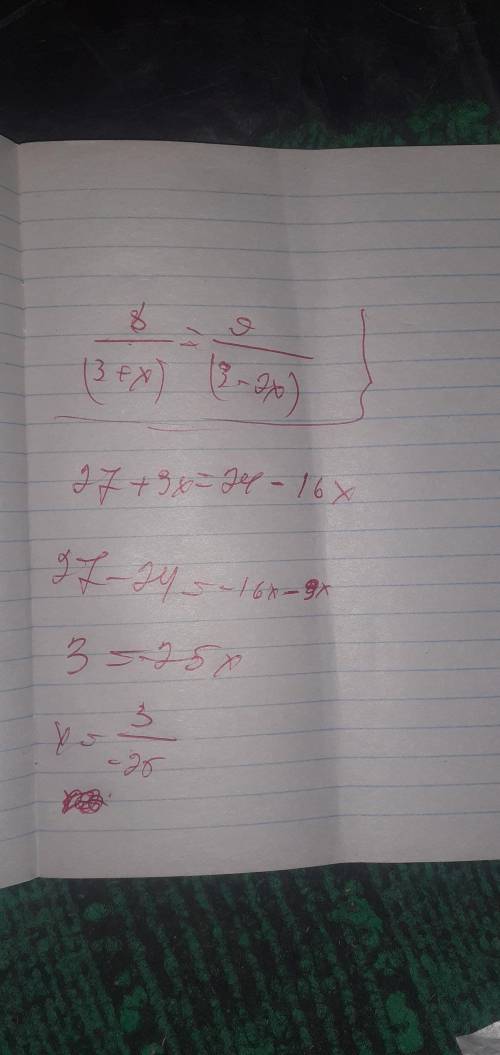 8/(3+x) = 9/(3-2x)
27+9x=24-16x
27-24=-16x-9x
3=-25x
x=3/-25